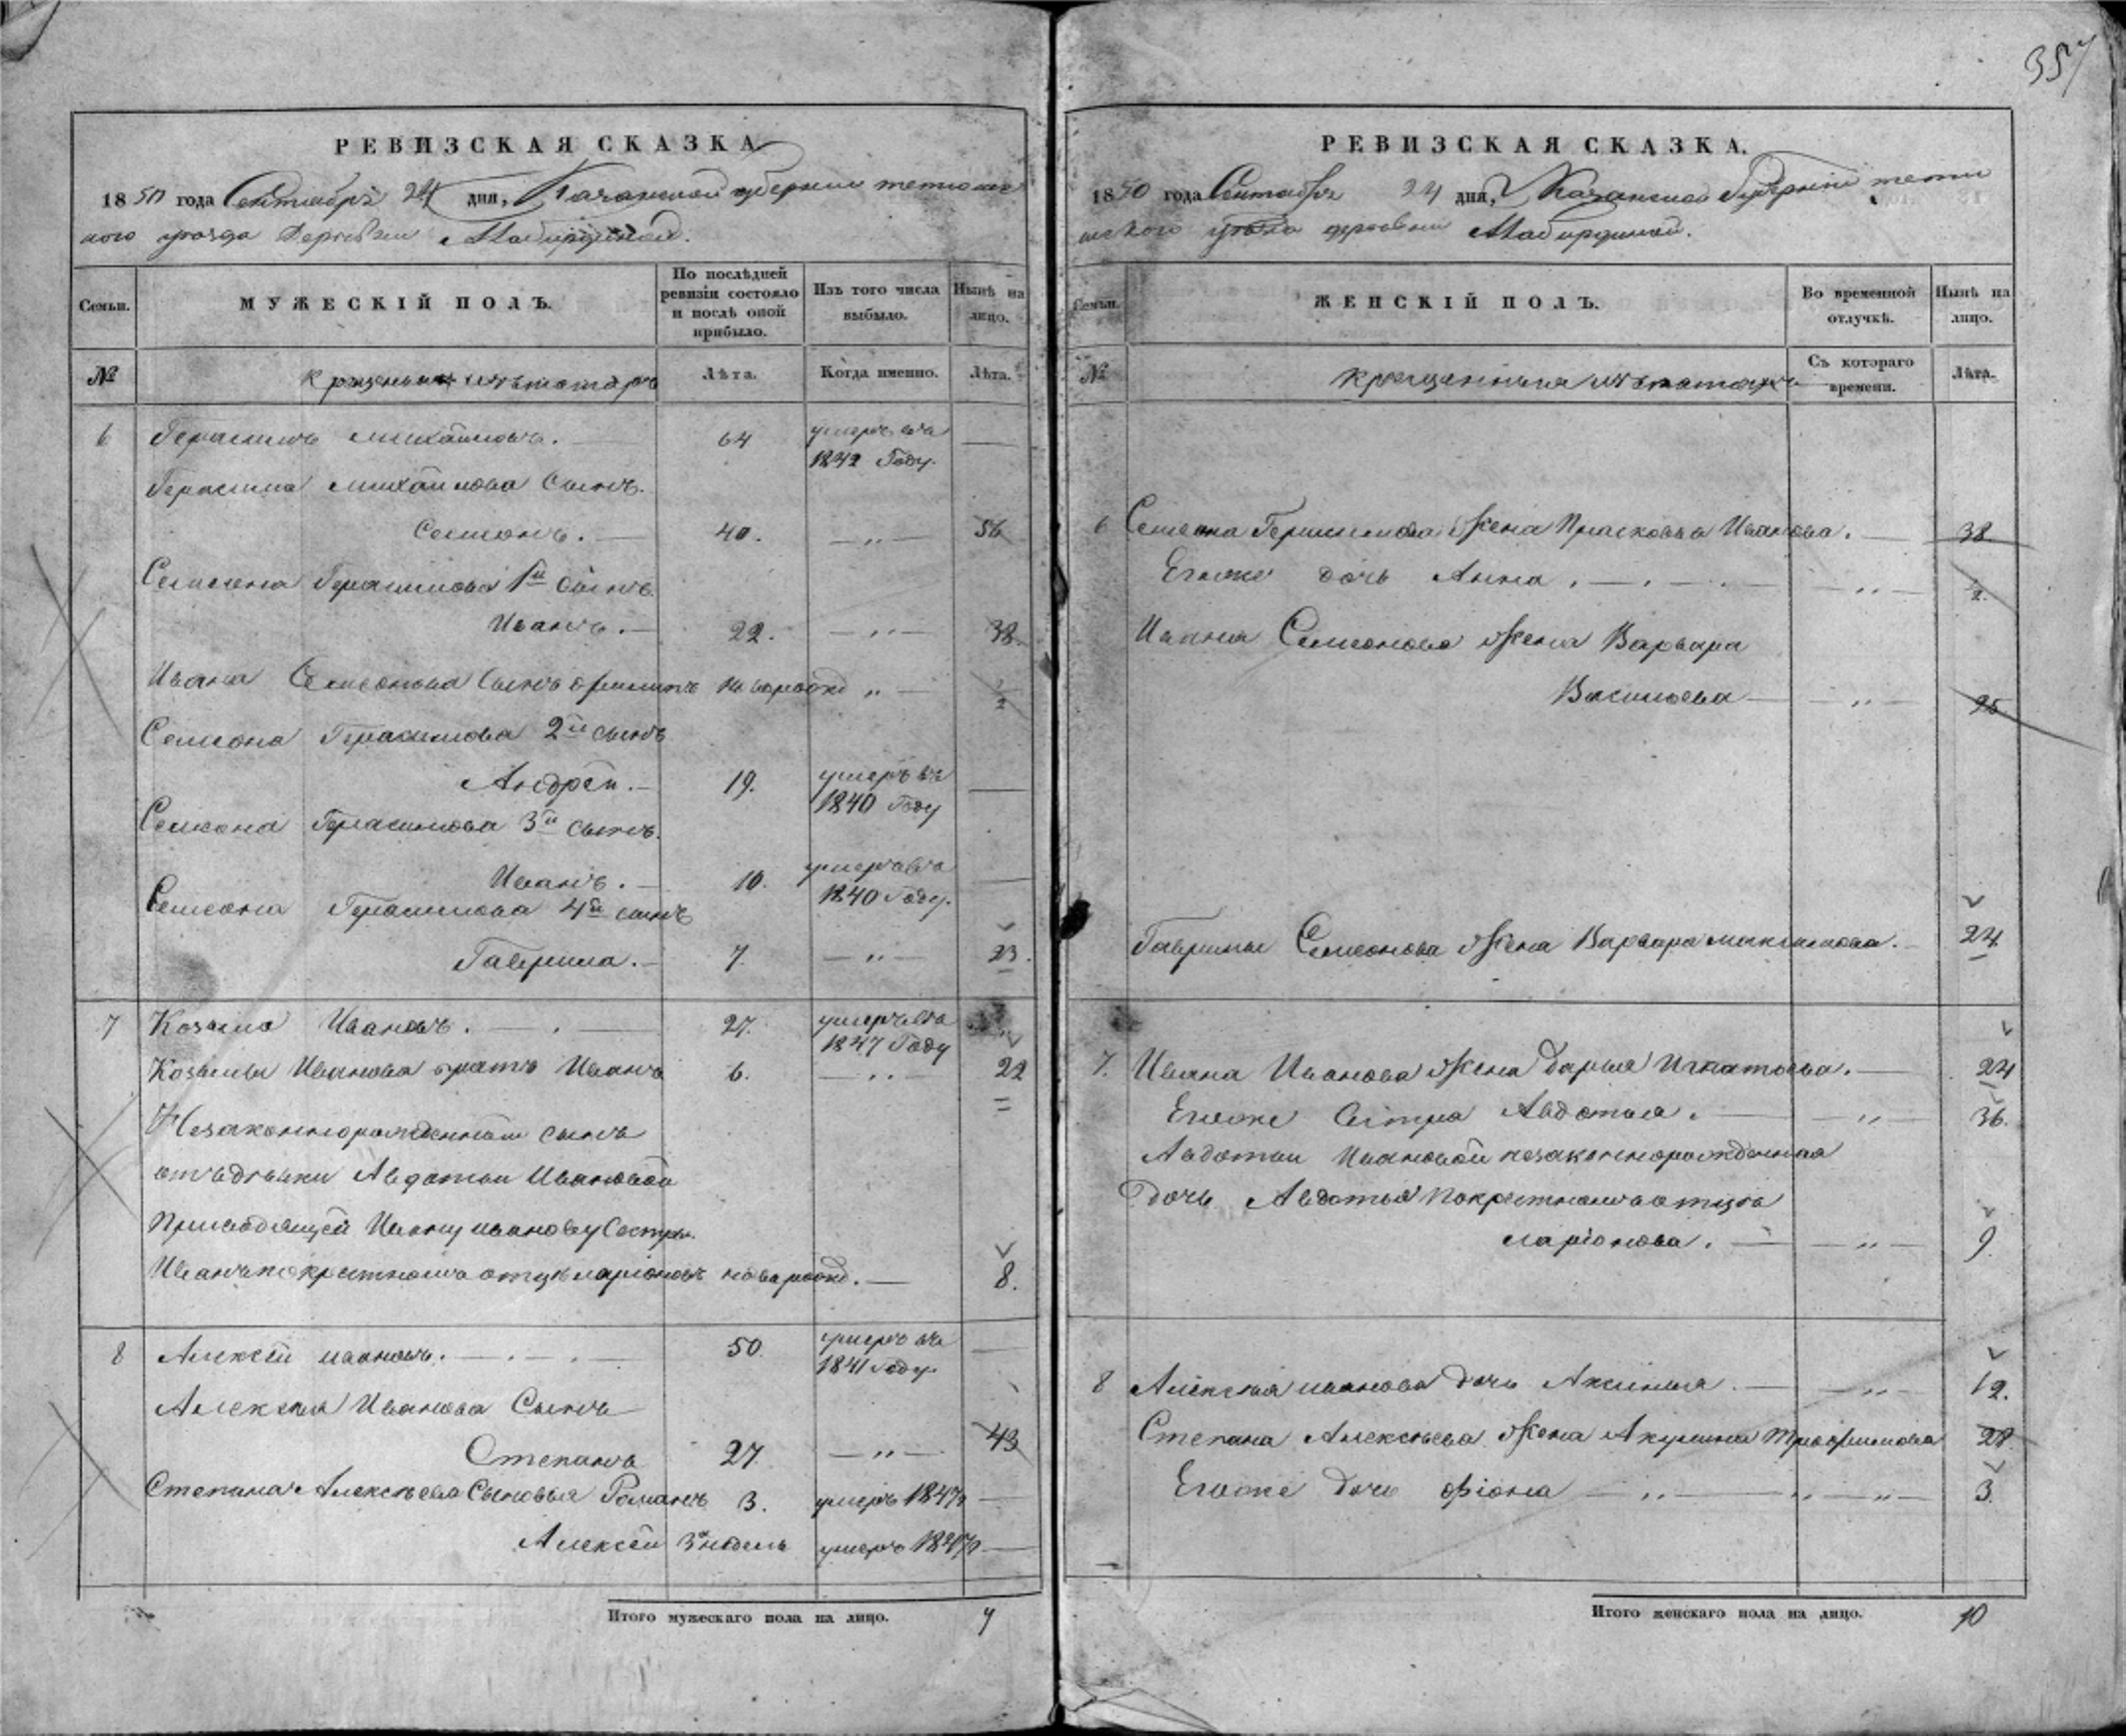 357
РЕВИЗСКАЯ СКАЗКА
1850 года Сентября 24 дня, Казанской губерніи тетюшс
каго уезда Деревни
Семьи.
МУЖЕСКІЙ ПОЛЪ.
По послѣдней ревизіи состояло и послѣ оной прибыло.
Изъ того числа выбыло.
Нынѣ на лицо.
№
крещеныя изъ татаръ
Лѣта.
Когда именно.
Лѣта.
6 Герасимъ Михайловъ. 64 умеръ въ 1842 Году. —
Герасима Михайлова Сынъ.
Семионъ. — 40. — „ — 56
Семиона Герасимова 1й Сынъ
Иванъ. — 22. — „ — 38.
Ивана Семионова Сынъ новорожд „ — 1/2
Семиона Герасимова 2й сынъ
Андрей. — 19. умеръ въ 1840 Году —
Семиона Герасимова 3й сынъ.
Иванъ. — 10. умеръ въ 1840 Году. —
Семиона Герасимова 4й сынъ
Гаврила. — 7. — „ — 23.
7 Козьма Ивановъ. — 27. умеръ въ 1847 Году „
Козьмы Иванова братъ Иванъ 6. — „ — 22
Незаконнорожденный сынъ
отъ девки Авдотьи Ивановой
Ивану Иванову Сестры.
Иванъ по крестному отцу Ларіоновъ новорожд. — 8.
8 Алексей Ивановъ. — 50. умеръ въ 1841 Году. —
Алексея Иванова Сынъ
Степанъ 27. — „ — 43
Степана Алексеева Сыновья Романъ 3. умеръ 1847 —
Алексей 3 недель умеръ 1847 —
Итого мужескаго пола на лицо. 7
РЕВИЗСКАЯ СКАЗКА.
1850 года Сентября 24 дня, Казанской Губерніи тетю
шскаго уезда деревни
Семьи.
ЖЕНСКІЙ ПОЛЪ.
Во временной отлучкѣ.
Нынѣ на лицо.
№
крещенныя изъ татаръ
Съ котораго времени.
Лѣта.
6 Семиона Герасимова Жена Прасковья Иванова. — 38
Егоже дочь Анна. — „ — 1/2.
Ивана Семионова Жена Варвара
Васильева — „ — 25
Гаврилы Семионова Жена Варвара Максимова. — 24.
7. Ивана Иванова Жена Дарья Игнатьева. — 24
Егоже Сестра Авдотья. — „ — 36.
Авдотьи Ивановой незаконнорожденная
Дочь Авдотья по крестному отцу
Ларіонова. — „ — 9.
8 Алексея Иванова дочь Аксинья. — „ — 12.
Степана Алексеева Жена Акулина Трофимова 28.
Егоже Дочь Фіона — „ — „ — „ — 3.
Итого женскаго пола на лицо. 10